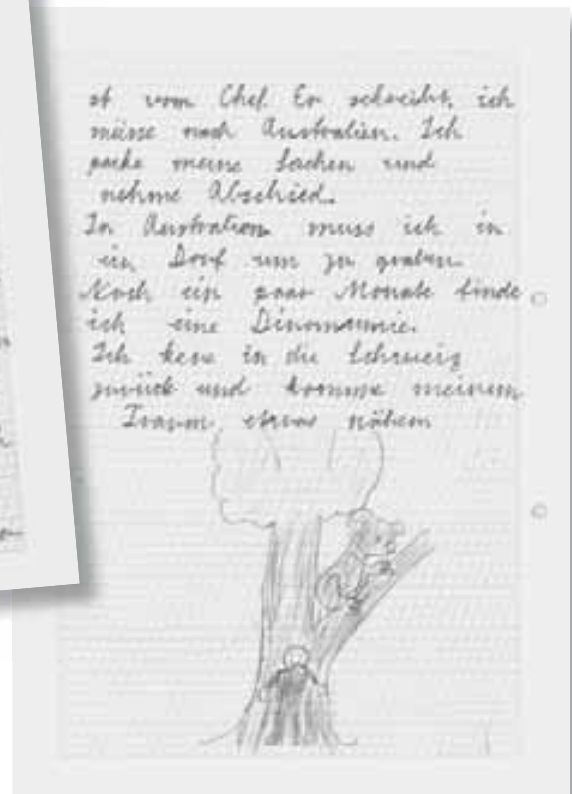 st vom Chef. Er schreibt, ich
müsse nach Australien. Ich
packe meine Sachen und
nehme Abschied.
In Australien muss ich in
ein Dorf um zu graben.
Nach ein paar Monate finde
ich eine Dinomumie.
Ich kere in die Schweiz
zurück und komme meinem
Traum etwas nähem